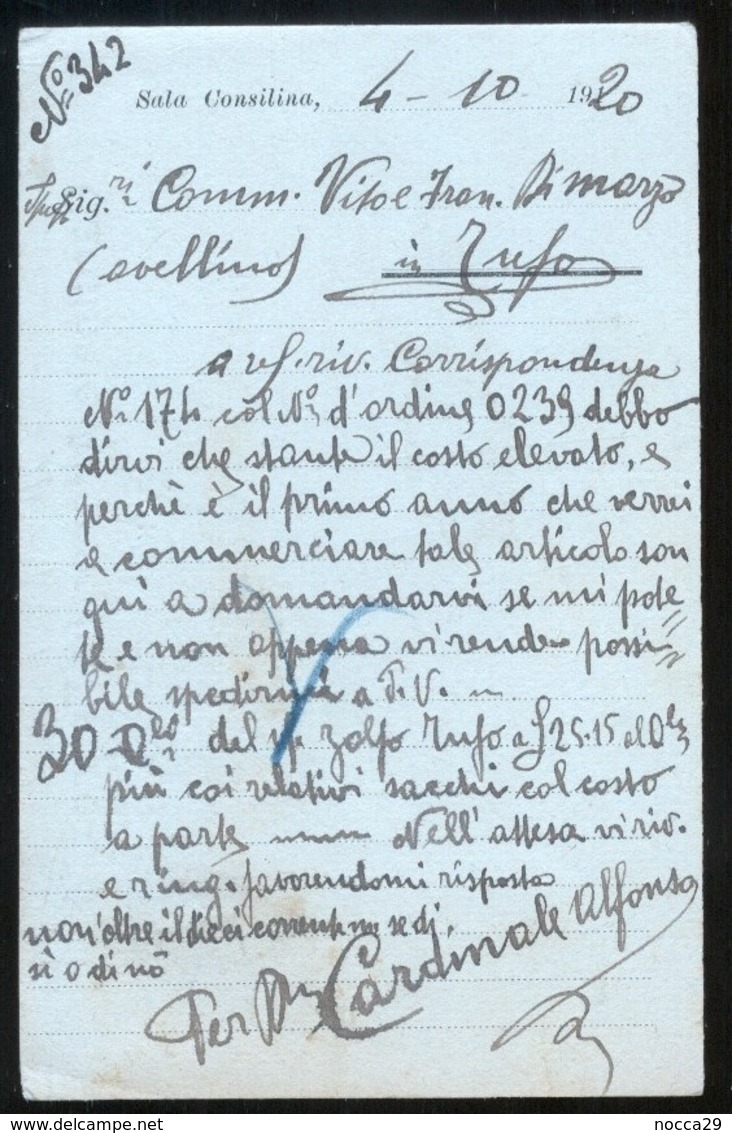 No 342
Sala Consilina, 4 - 10 1920
Spett. Sig.ri Comm. Vito e Fran. Di Marzo
(Avellino) in Tufo
a riv. Corrispondenza
No. 174 col No. d'ordine 0239 debbo
dirvi che stante il costo elevato, e
perchè è il primo anno che verrei
a commerciare tale articolo son
qui a domandarvi se mi pote=
te e non appena vi rende possi=
bile spedirmi a P.V.
30 Qli del zolfo Tufo a £ 25.15 al Qle
più coi relativi sacchi col costo
a parte Nell'attesa vi riv.
e ring. favorendomi risposta
non oltre il dieci corrente me se di
sì o di nò
Per Cardinale Alfonso
delcampe.net
nocca29